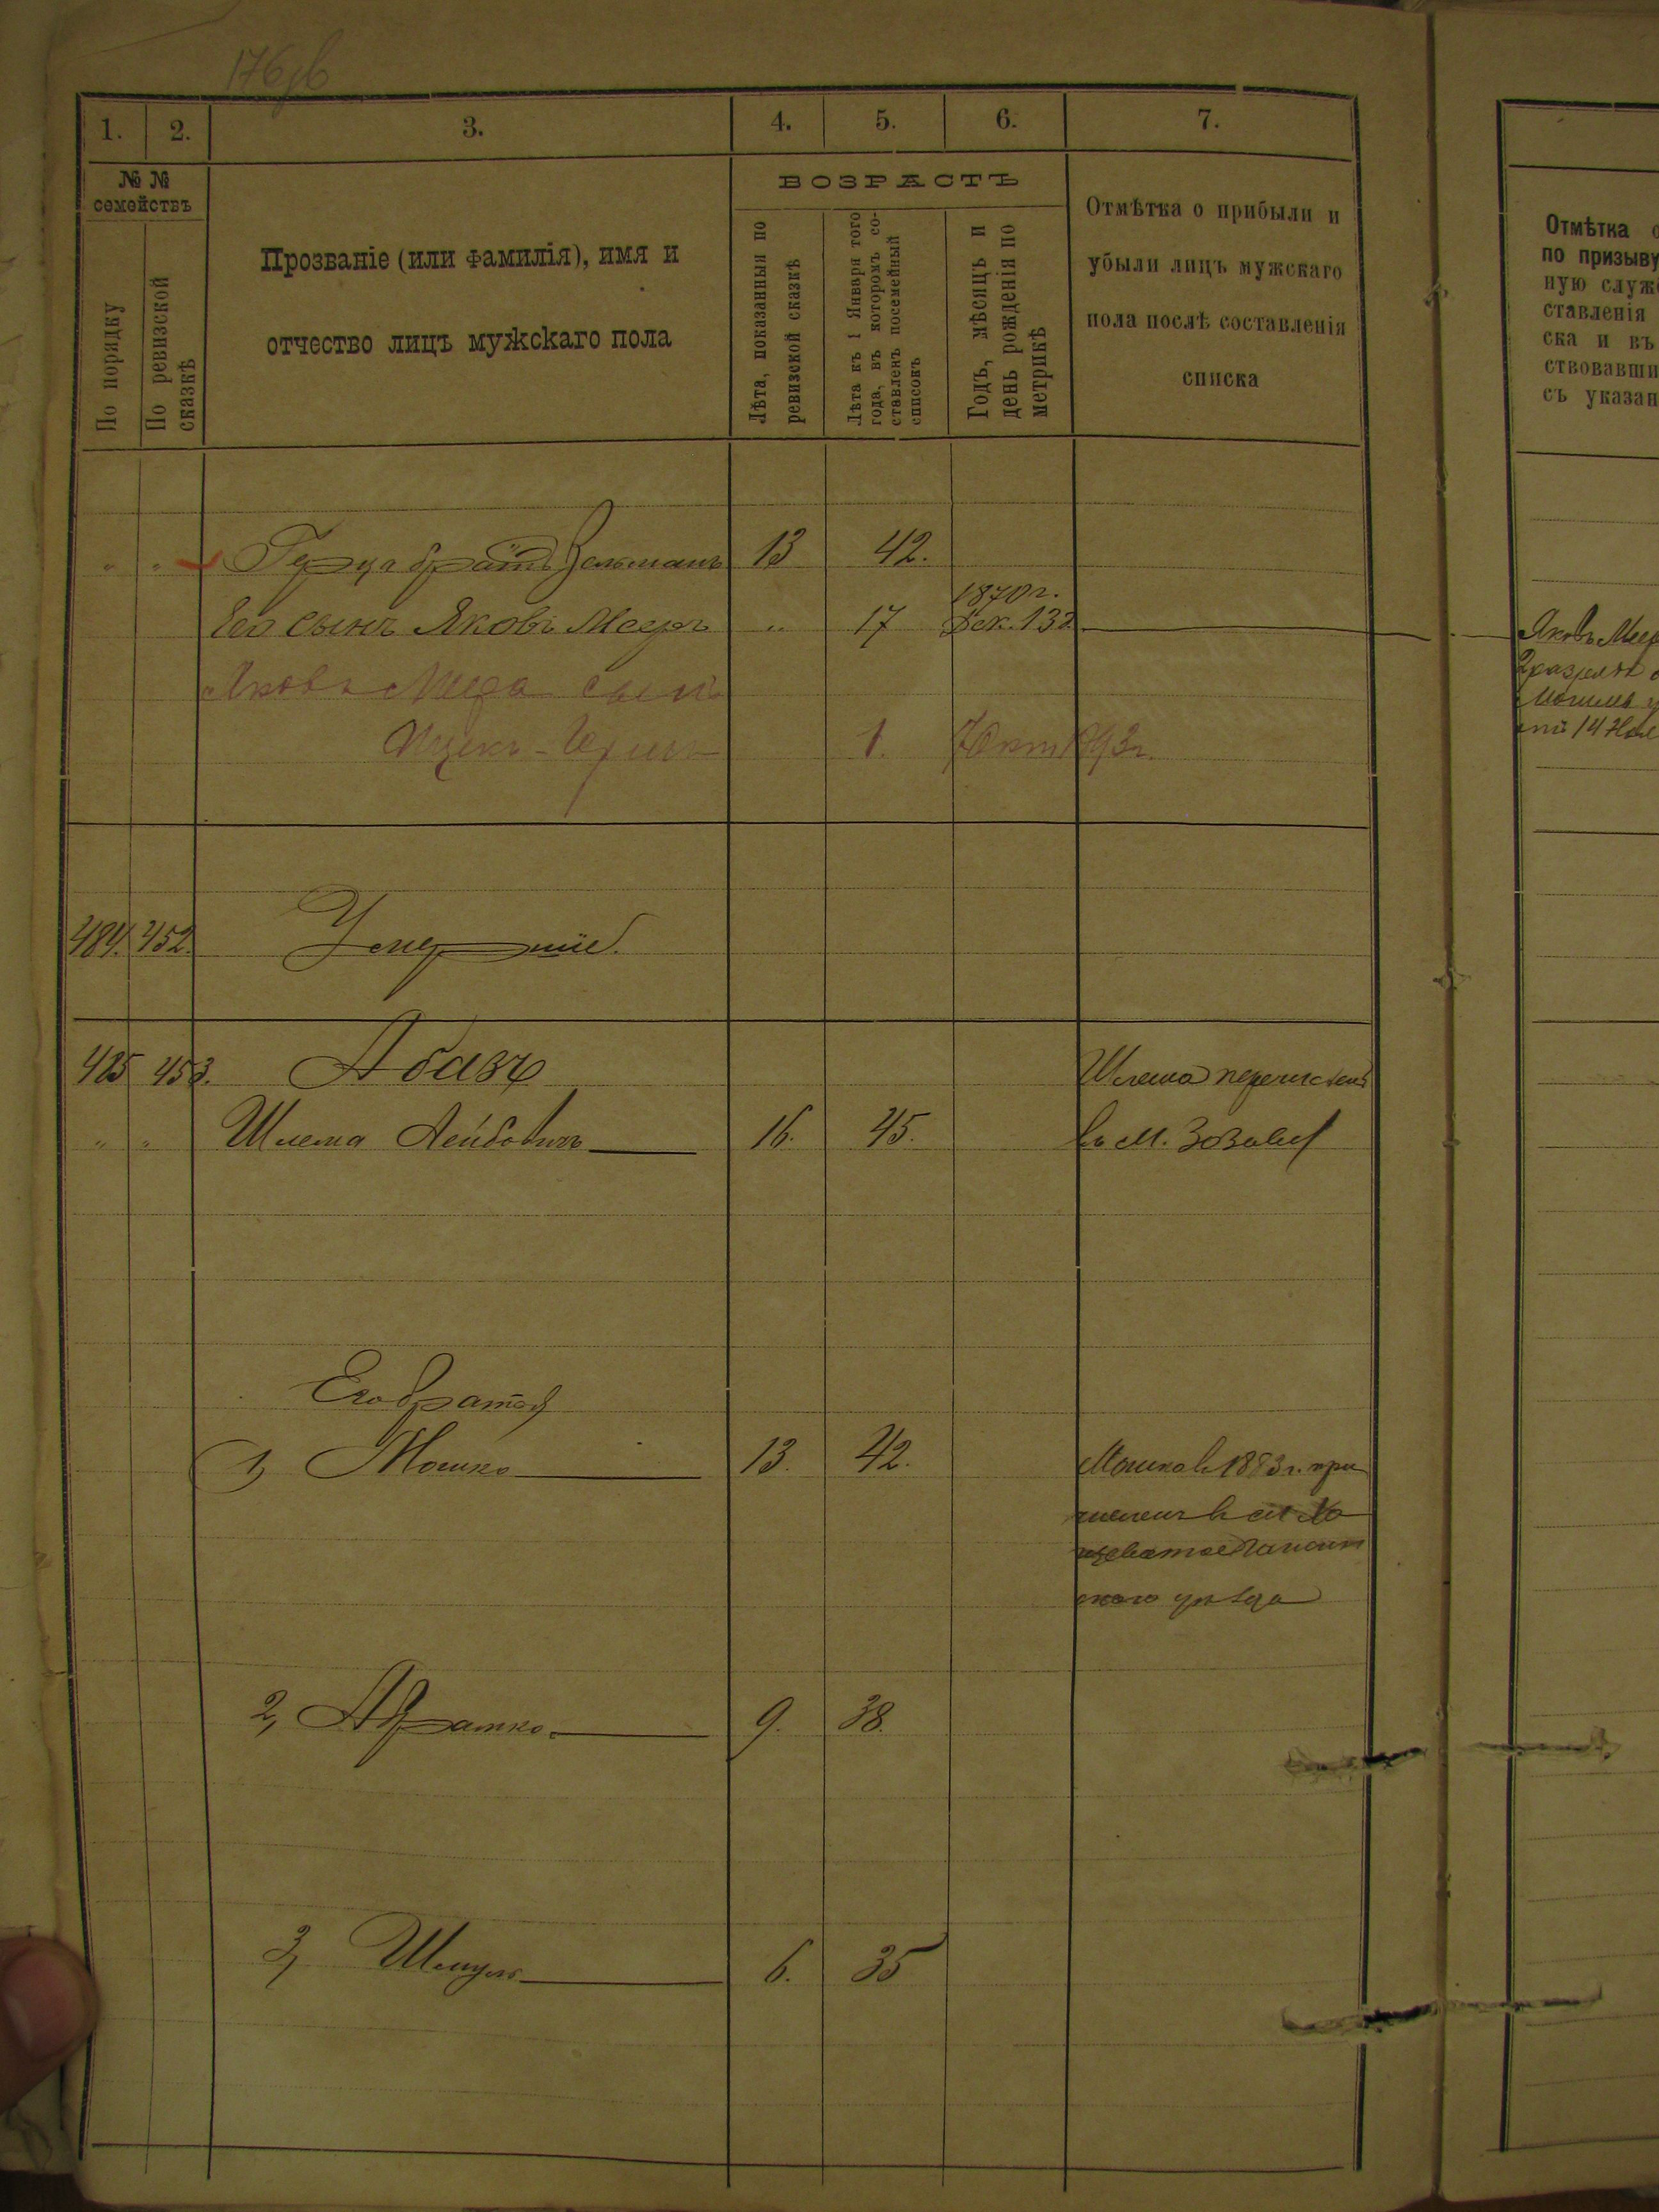 176об
1. 2. 3. 4. 5. 6. 7.
№ №
семействъ
По порядку
По ревизской
сказкѣ
Прозваніе (или фамилія), имя и
отчество лицъ мужскаго пола
ВОЗРАСТЪ
Лѣта, показанныя по
ревизской сказкѣ
Лѣта къ 1 Января того
года, въ которомъ со-
ставленъ посемейный
списокъ
Годъ, мѣсяцъ и
день рожденія по
метрикѣ
Отмѣтка о прибыли и
убыли лицъ мужскаго
пола послѣ составленія
списка
" " Герца братъ Зельманъ 13 42.
1870 г.
Его сынъ Яковъ Мееръ " 17 Дек. 13д
Яковъ Мера сынъ
Ицекъ - 1. 7 Окт 1893г.
484. 452. Умершіе.
485 453. Абазъ
Шлема перечислен
" " Шлема Лейбовичъ 16. 45. въ М.
Его братья
1, Мошко 13. 42. Мошко въ 1883 г. при
численъ в
скаго уѣзда
2, Абрамко 9. 38.
3, Шмуль 6. 35
Отмѣтка
по призыву
ную служ
ставленія
ска и въ
ствовавши
съ указан
Яковъ Меер
2 разряда
14 Ноя